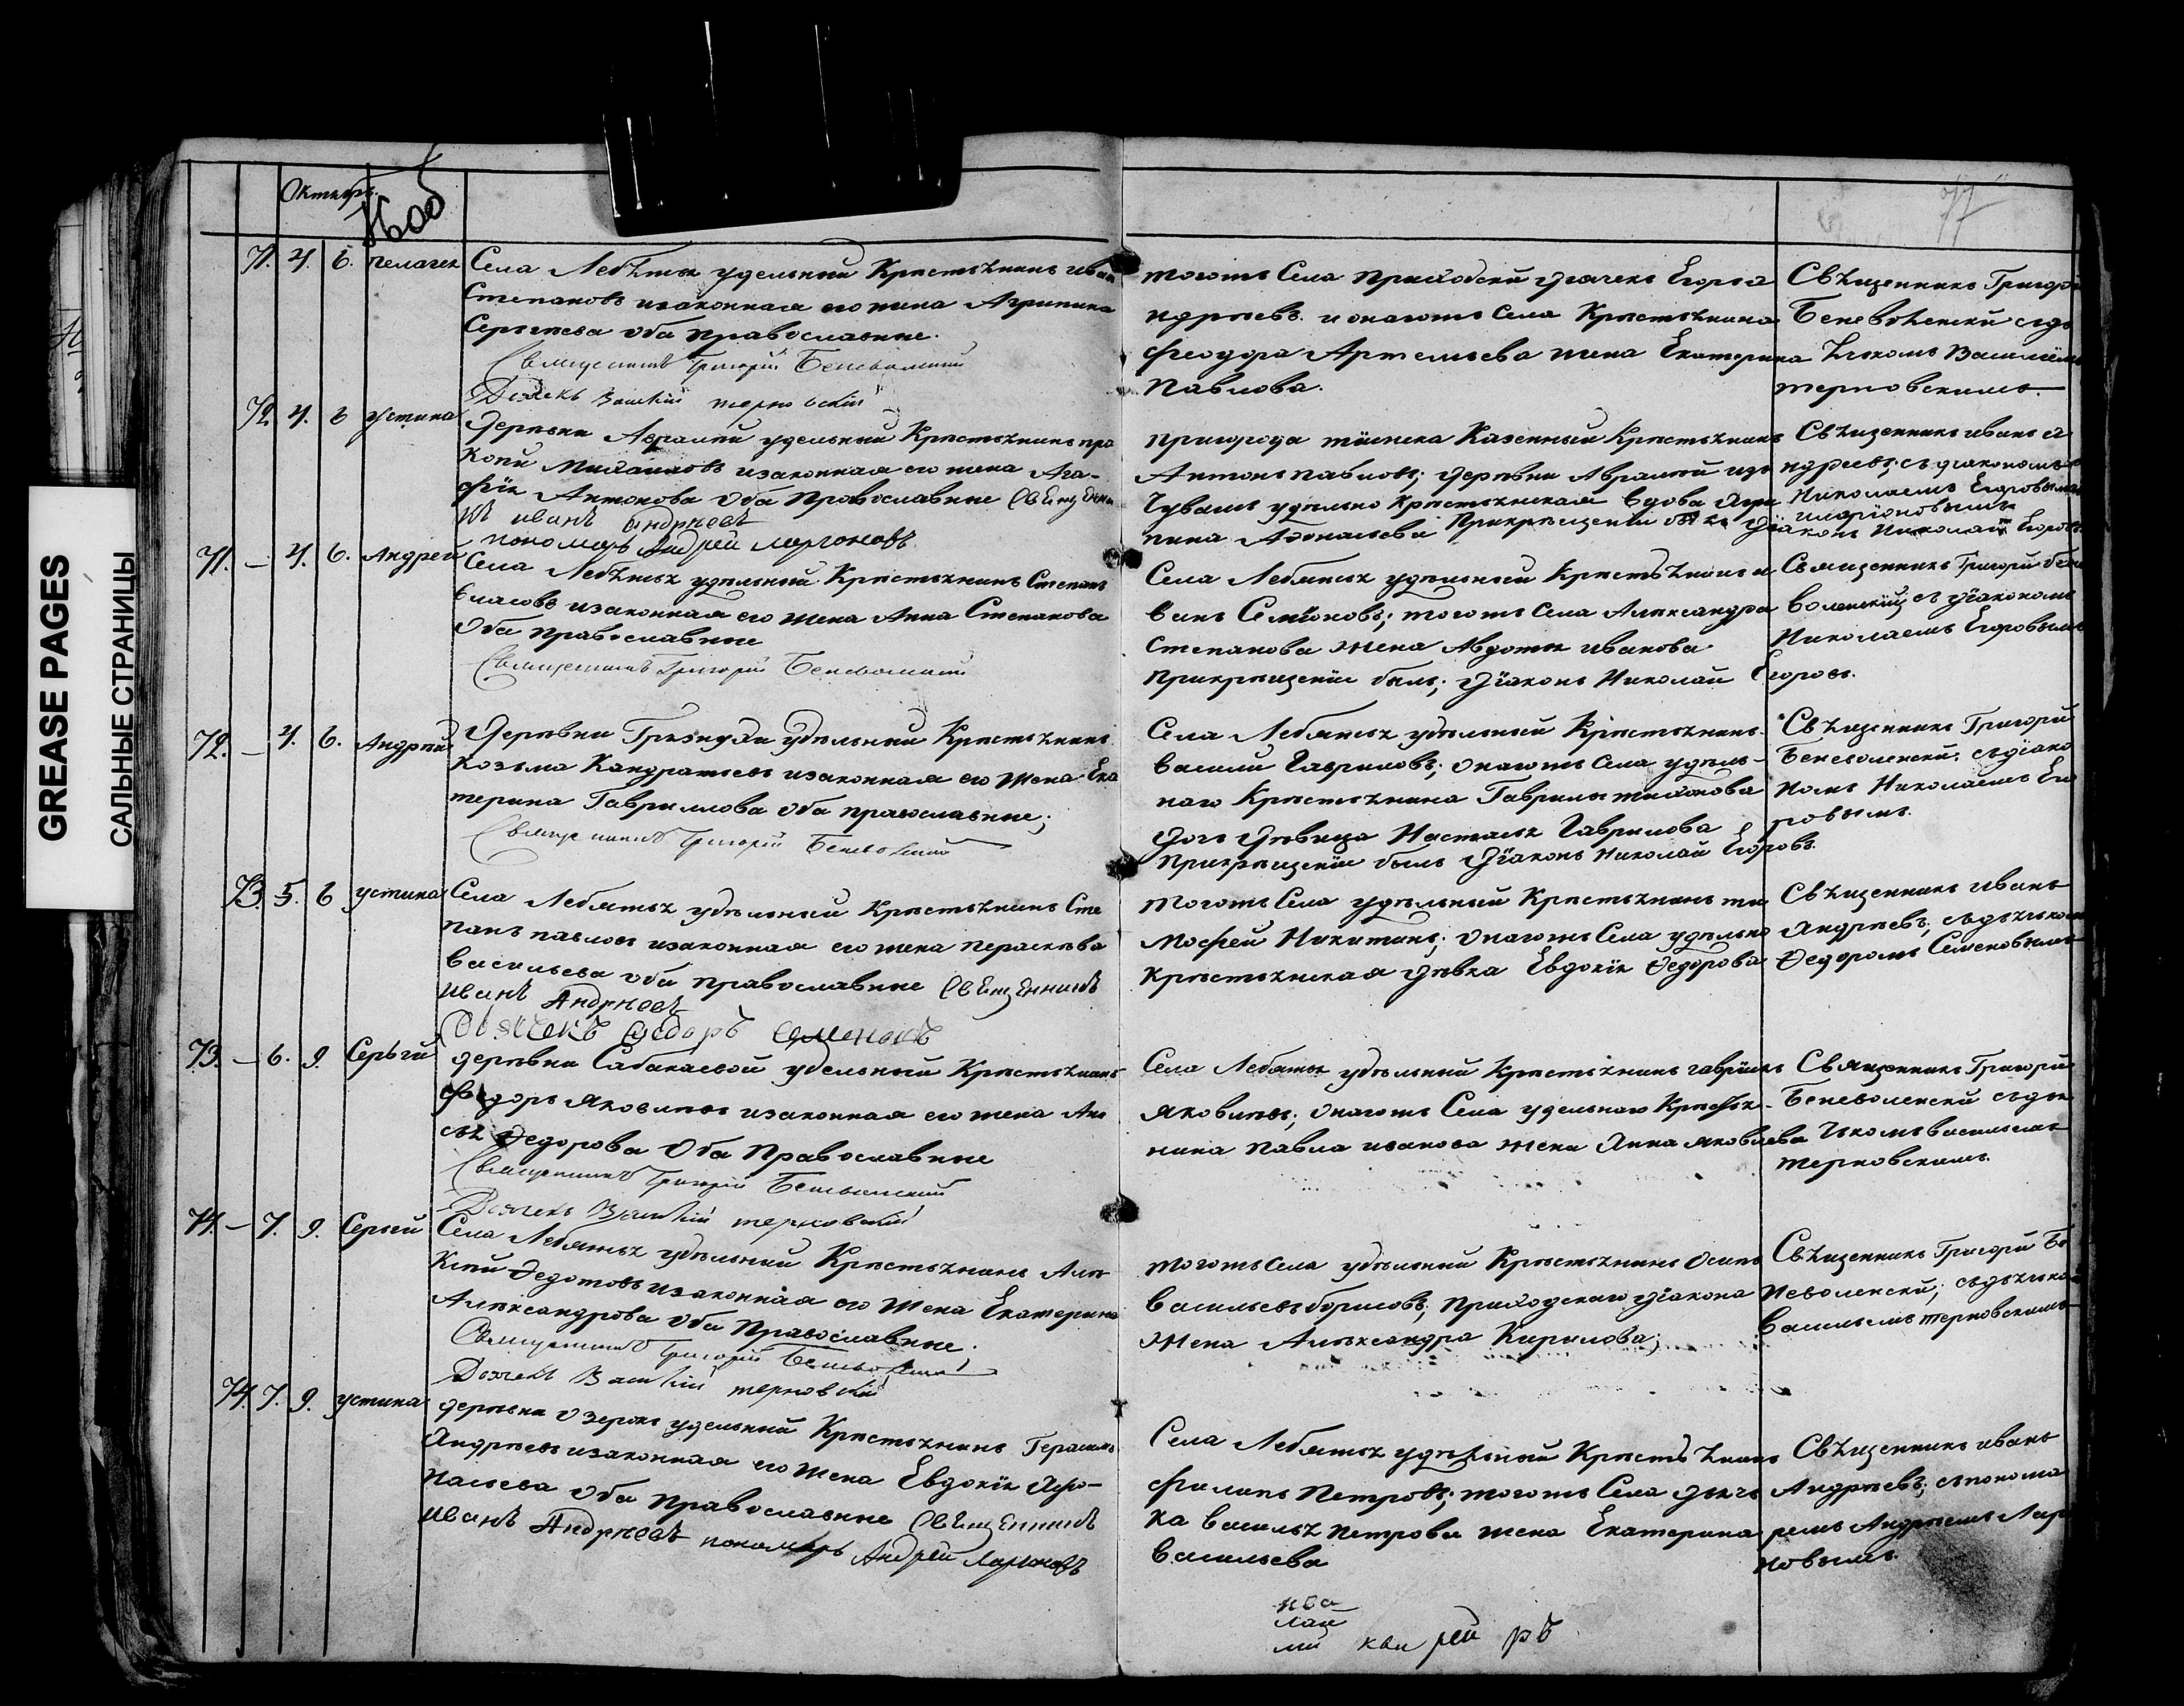 GREASE PAGES
САЛЬНЫЕ СТРАНИЦЫ
Октябрь.
77
71. 4. 6. пелагея Села Лебяжья удельный Крестьянинъ иван
Степановъ изаконная его жена Агрипина
Сергеева оба православные.
Священникъ Григорій Беневоленский
Дьячекъ Василий терновскій
тогожъ Села приходской дьячекъ Егоръ а
ндреевъ. и онагожъ Села Крестьянина
феодора Артемьева жена Екатерина
Павлова.
Священникъ Григорий
Беневоленский съ дья
чькомъ Василиемъ
терновскимъ.
72 4. 6 устина Деревни Авралей удельный Крестьянинъ про
копий Михаиловъ изаконная его жена Ага-
фия Антонова оба Православные Священни
къ иванъ андреевъ
пономарь Андрей ларионовъ
пригорода тиинска Казенный Крестьянинъ
Антонъ павловъ; деревни Авралей изъ
Чувашъ удельно крестьянская вдова Агри
пина Афонасьева Прикрещении былъ дияконъ Николай Егоровъ
Священникъ иванъ а
ндреевъ; съ дьякономъ
Николаемъ Егоровымъ
71. — 4. 6. Андрей Села Лебяжья удельный Крестьянинъ Степанъ
власовъ изаконная его жена Анна Степанова
Оба православные
Священникъ Григорій Беневоленский
Села Лебяжья удельный Крестьянинъ и
ванъ Семионовъ; тогожъ Села Александра
Степанова жена Авдотья иванова
Прикрещении былъ; диаконъ Николай Егоровъ.
Священникъ Григорий бене
воленский съ диакономъ
Николаемъ Егоровымъ
72. — 4. 6. Андрей Деревни Грязнухи удельный Крестьянинъ
Козьма Кандратьевъ изаконная его жена Ека
терина Гаврилова оба православные;
Священникъ Григорій Беневоленский
Села Лебяжья удельный Крестьянинъ
василий Гавриловъ; онагожъ Села удель-
наго Крестьянина Гаврилы тихонова
дочь девица Настасья Гаврилова
Прикрещении былъ диаконъ Николай Егоровъ.
Священникъ Григорий
Беневоленский; съ диако
номъ Николаемъ Его
ровымъ.
73. 5. 6 устина Села Лебяжья удельный Крестьянинъ Сте
панъ павловъ изаконная его жена параскева
васильева оба православные Священникъ
иванъ Андреевъ
Дьячекъ Федоръ Семеновъ
тогожъ Села удельный Крестьянинъ ти
мофей Никитинъ; онагожъ Села удельно
крестьянская девка Евдокия Федорова
Священникъ иванъ
Андреевъ; съ дьячькомъ
Федоромъ Семеновымъ
73. — 6. 9. Сергей деревни Сабакаевой удельный Крестьянинъ
федоръ яковлевъ изаконная его жена Ани
сья Федорова Оба Православные
Священникъ Григорій Беневоленский
Дьячекъ Василий терновский
Села Лебяжья удельный Крестьянинъ гаврилъ
яковлевъ; онагожъ Села удельнаго Крестья-
нина павла иванова жена Анна яковлева
Священникъ Григорий
Беневоленский съ дья
чькомъ васильемъ
терновскимъ.
74. — 7. 9. Сергей Села Лебяжья удельный Крестьянинъ Алек
сей Федотовъ изаконная его жена Екатерина
Александрова оба Православные.
Священникъ Григорий Беневоленский
Дьячекъ Василий терновский
тогожъ Села удельный Крестьянинъ осипъ
васильевъ борисовъ; приходскаго диакона
жена Александра Кирилова;
Священникъ Григорий Бе
неволенский; съ дьячько
васильемъ терновскимъ
74. 7. 9. устина деревни озерокъ удельный Крестьянинъ Герасимъ
Андреевъ изаконная его жена Евдокия Афо-
насьева оба Православные Священникъ
иванъ Андреевъ пономарь Андрей Ларионовъ
Села Лебяжья удельный Крестьянинъ
филипъ Петровъ; тогожъ Села дьячь
ка василья петрова жена Екатерина
васильева
Священникъ иванъ
Андреевъ; съ понома
ремъ Андреемъ Лари
новымъ.